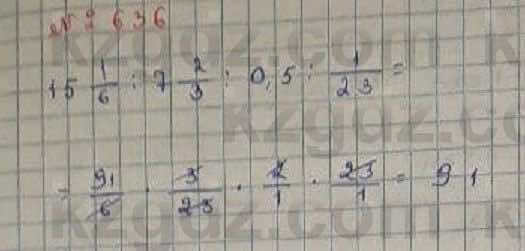 № 2 636
15 1/6 : 7 2/3 : 0,5 : 1/23 =
= 91/6 · 3/23 · 2/1 · 23/1 = 91
kzgdz.com